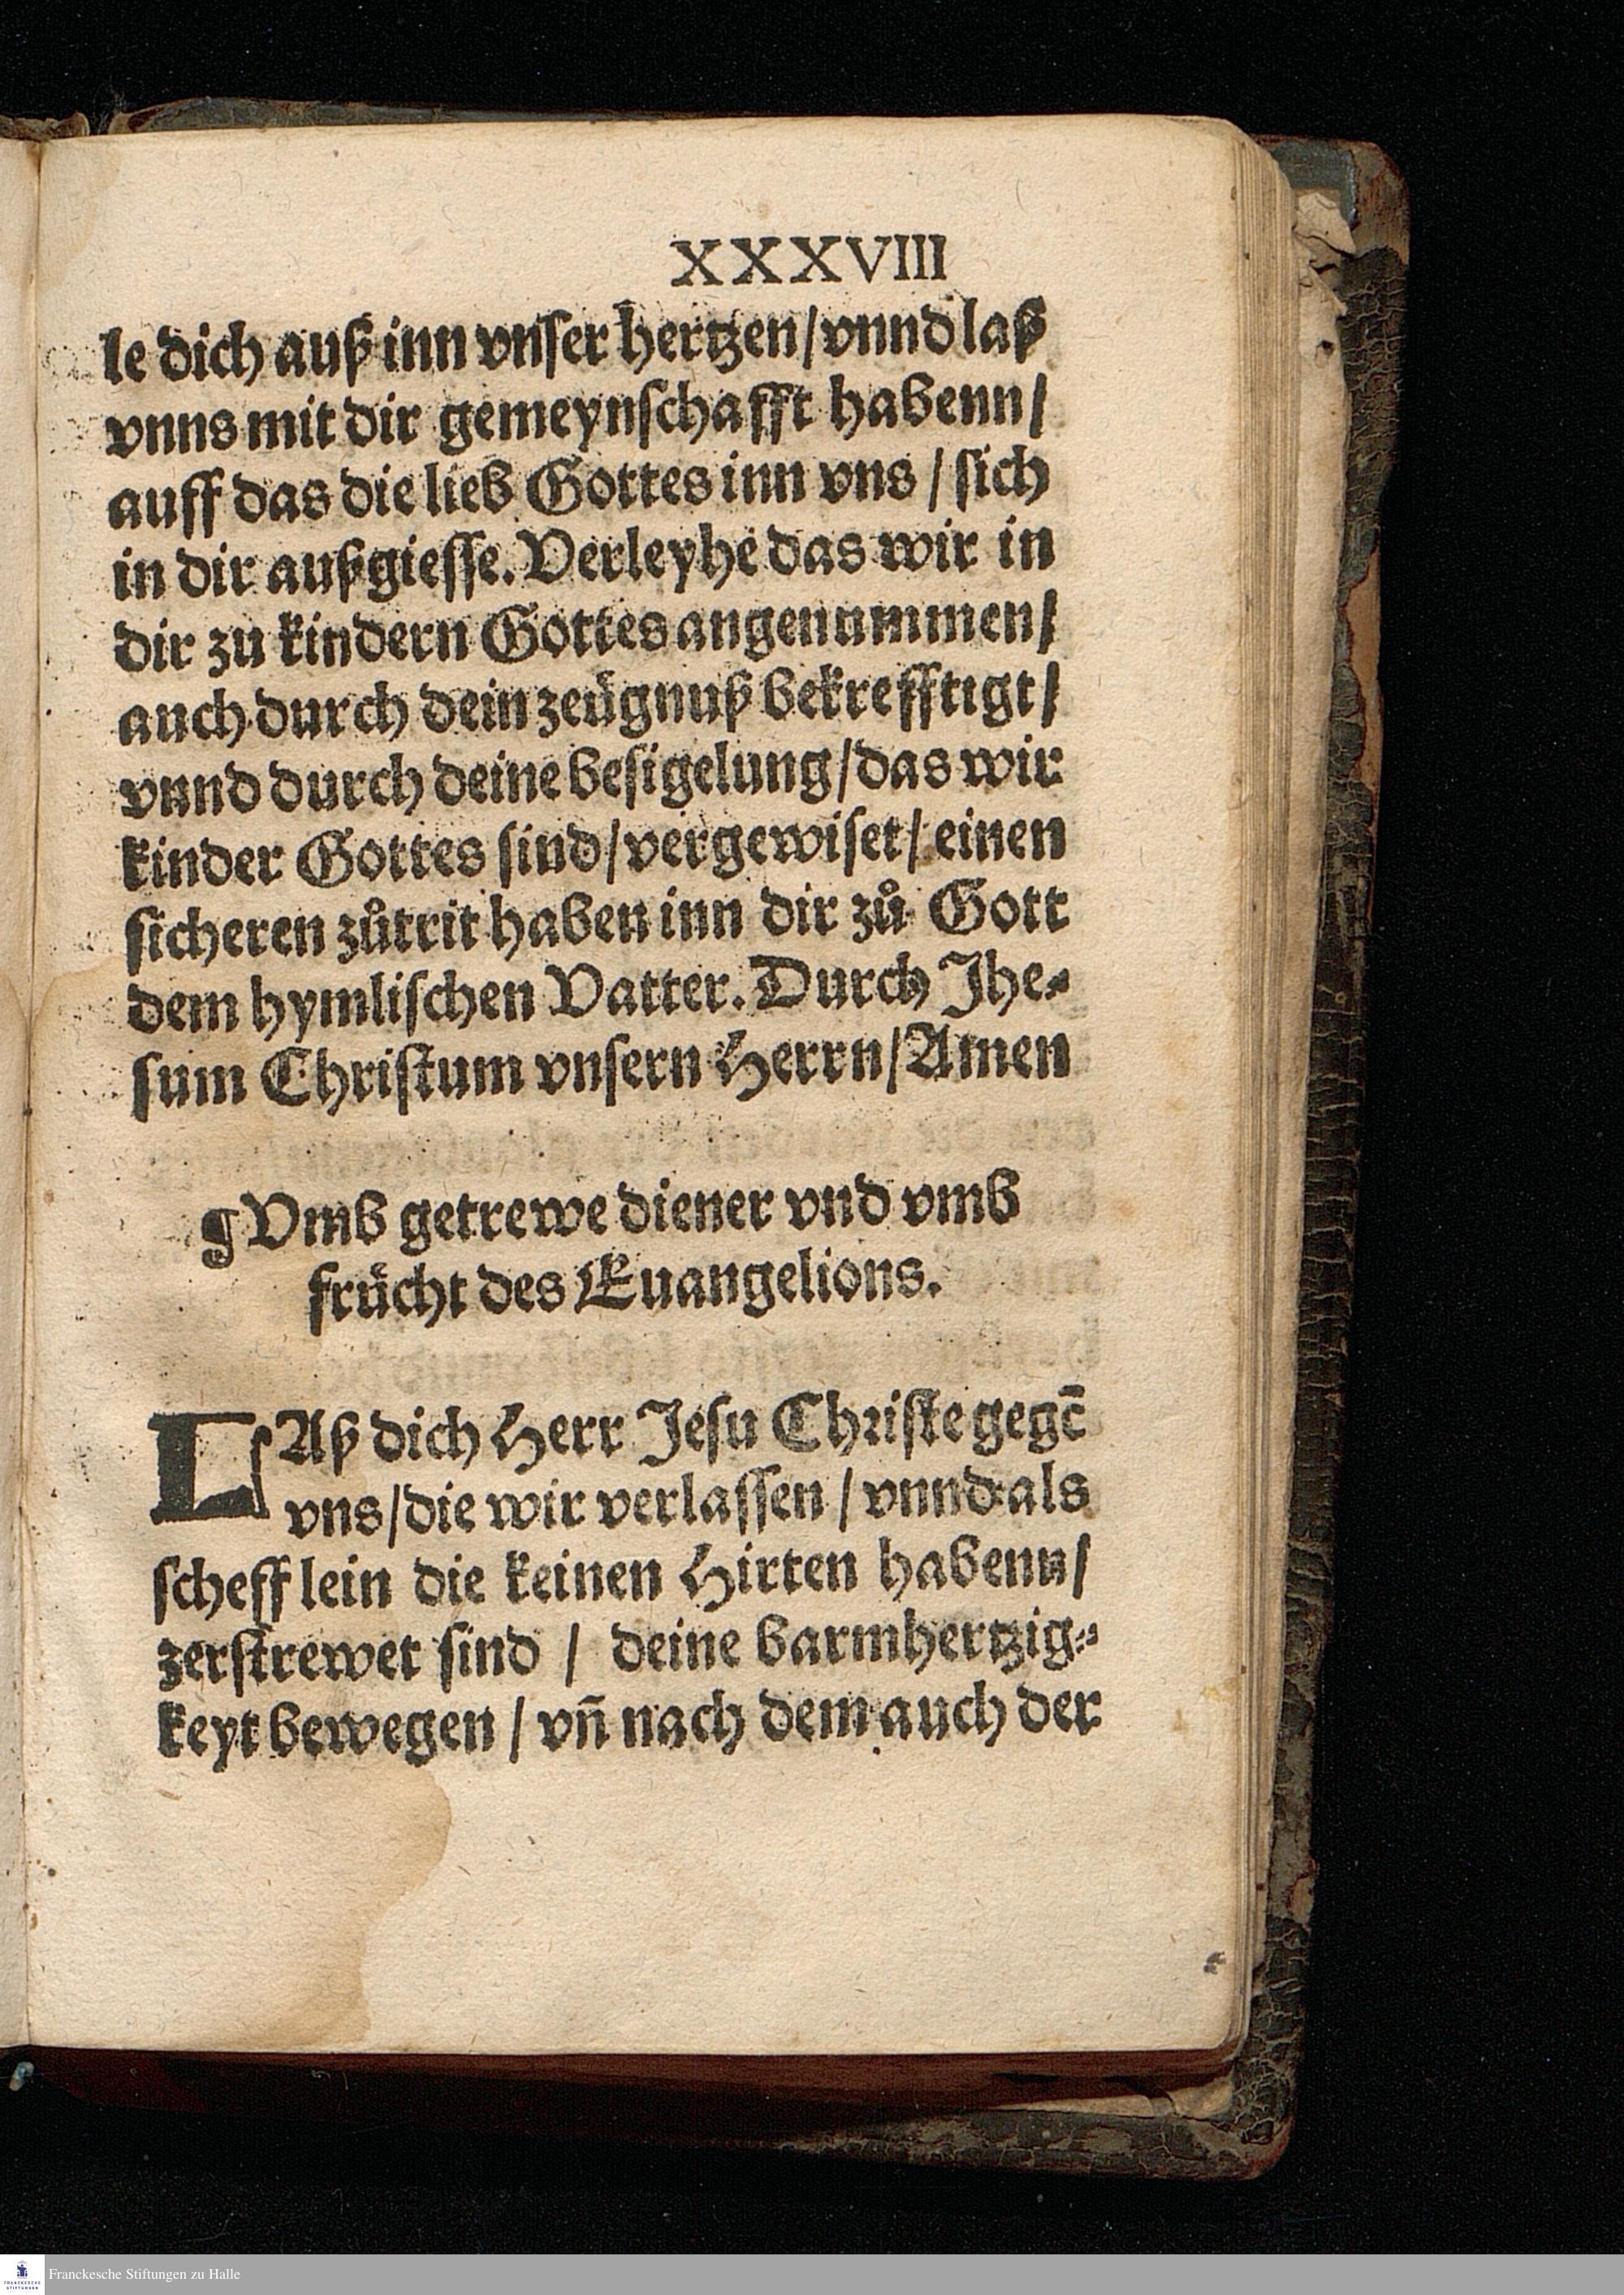 XXXVIII
le dich auß inn vnser hertzen / vnnd laß
vnns mit dir gemeynschafft habenn /
auff das die lieb Gottes inn vns / sich
in dir außgiesse. Verleyhe das wir in
dir zu kindern Gottes angenummen /
auch durch dein zeügnuß bekrefftigt /
vnnd durch deine besigelung / das wir
kinder Gottes sind / vergewiset / einen
sicheren zůtrit haben inn dir zů Gott
dem hymlischen Vatter. Durch Jhe⸗
sum Christum vnsern Herrn / Amen
¶ Vmb getrewe diener vnd vmb
frücht des Euangelions.
LAß dich Herr Jesu Christe gegē
vns / die wir verlassen / vnnd als
schefflein die keinen Hirten habenn /
zerstrewet sind / deine barmhertzig⸗
keyt bewegen / vñ nach dem auch der
FRANCKESCHE
STIFTUNGEN
Franckesche Stiftungen zu Halle